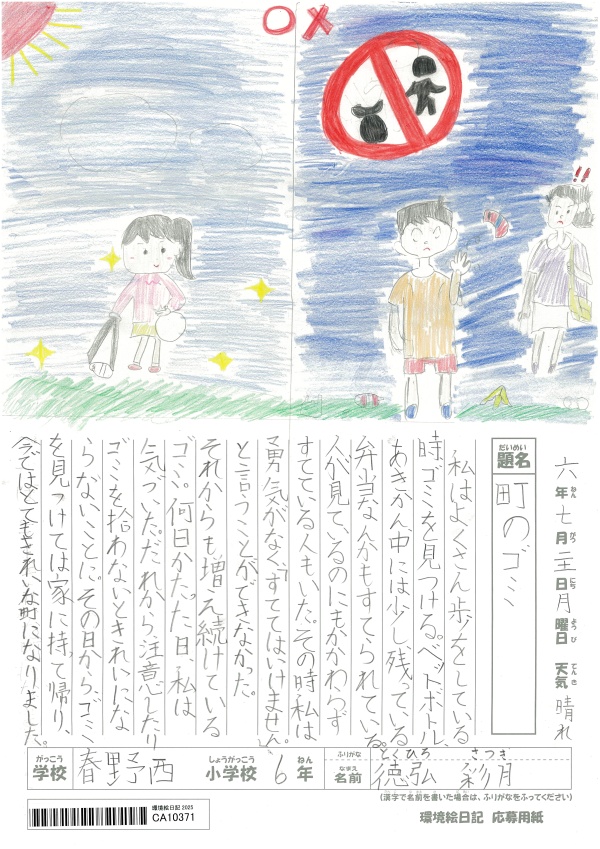 ○×
!!
六年七月二十一日月曜日 天気 晴れ
ねん がつ にち ようび てんき
だいめい
題名
町のゴミ
私はよくさん歩をしている
時、ゴミを見つける。ペットボトル、
あきかん、中には少し残っている
弁当なんかもすてられている。
人が見ているのにもかかわらず
すてている人もいた。その時私は
勇気がなく「すててはいけません。」
と言うことができなかった。
それからも増え続けている
ゴミ。何日かたった日、私は
気づいた。だれから注意したり
ゴミを拾わないときれいにな
らないことに。その日から、ゴミ
を見つけては家に持って帰り、
今ではとてもきれいな町になりました。
がっこう
学校
春野西
しょうがっこう
小学校
6
ねん
年
ふりがな
とくひろ さつき
なまえ
名前
徳弘 彩月
(漢字で名前を書いた場合は、ふりがなをふってください)
環境絵日記 2025
CA10371
環境絵日記 応募用紙